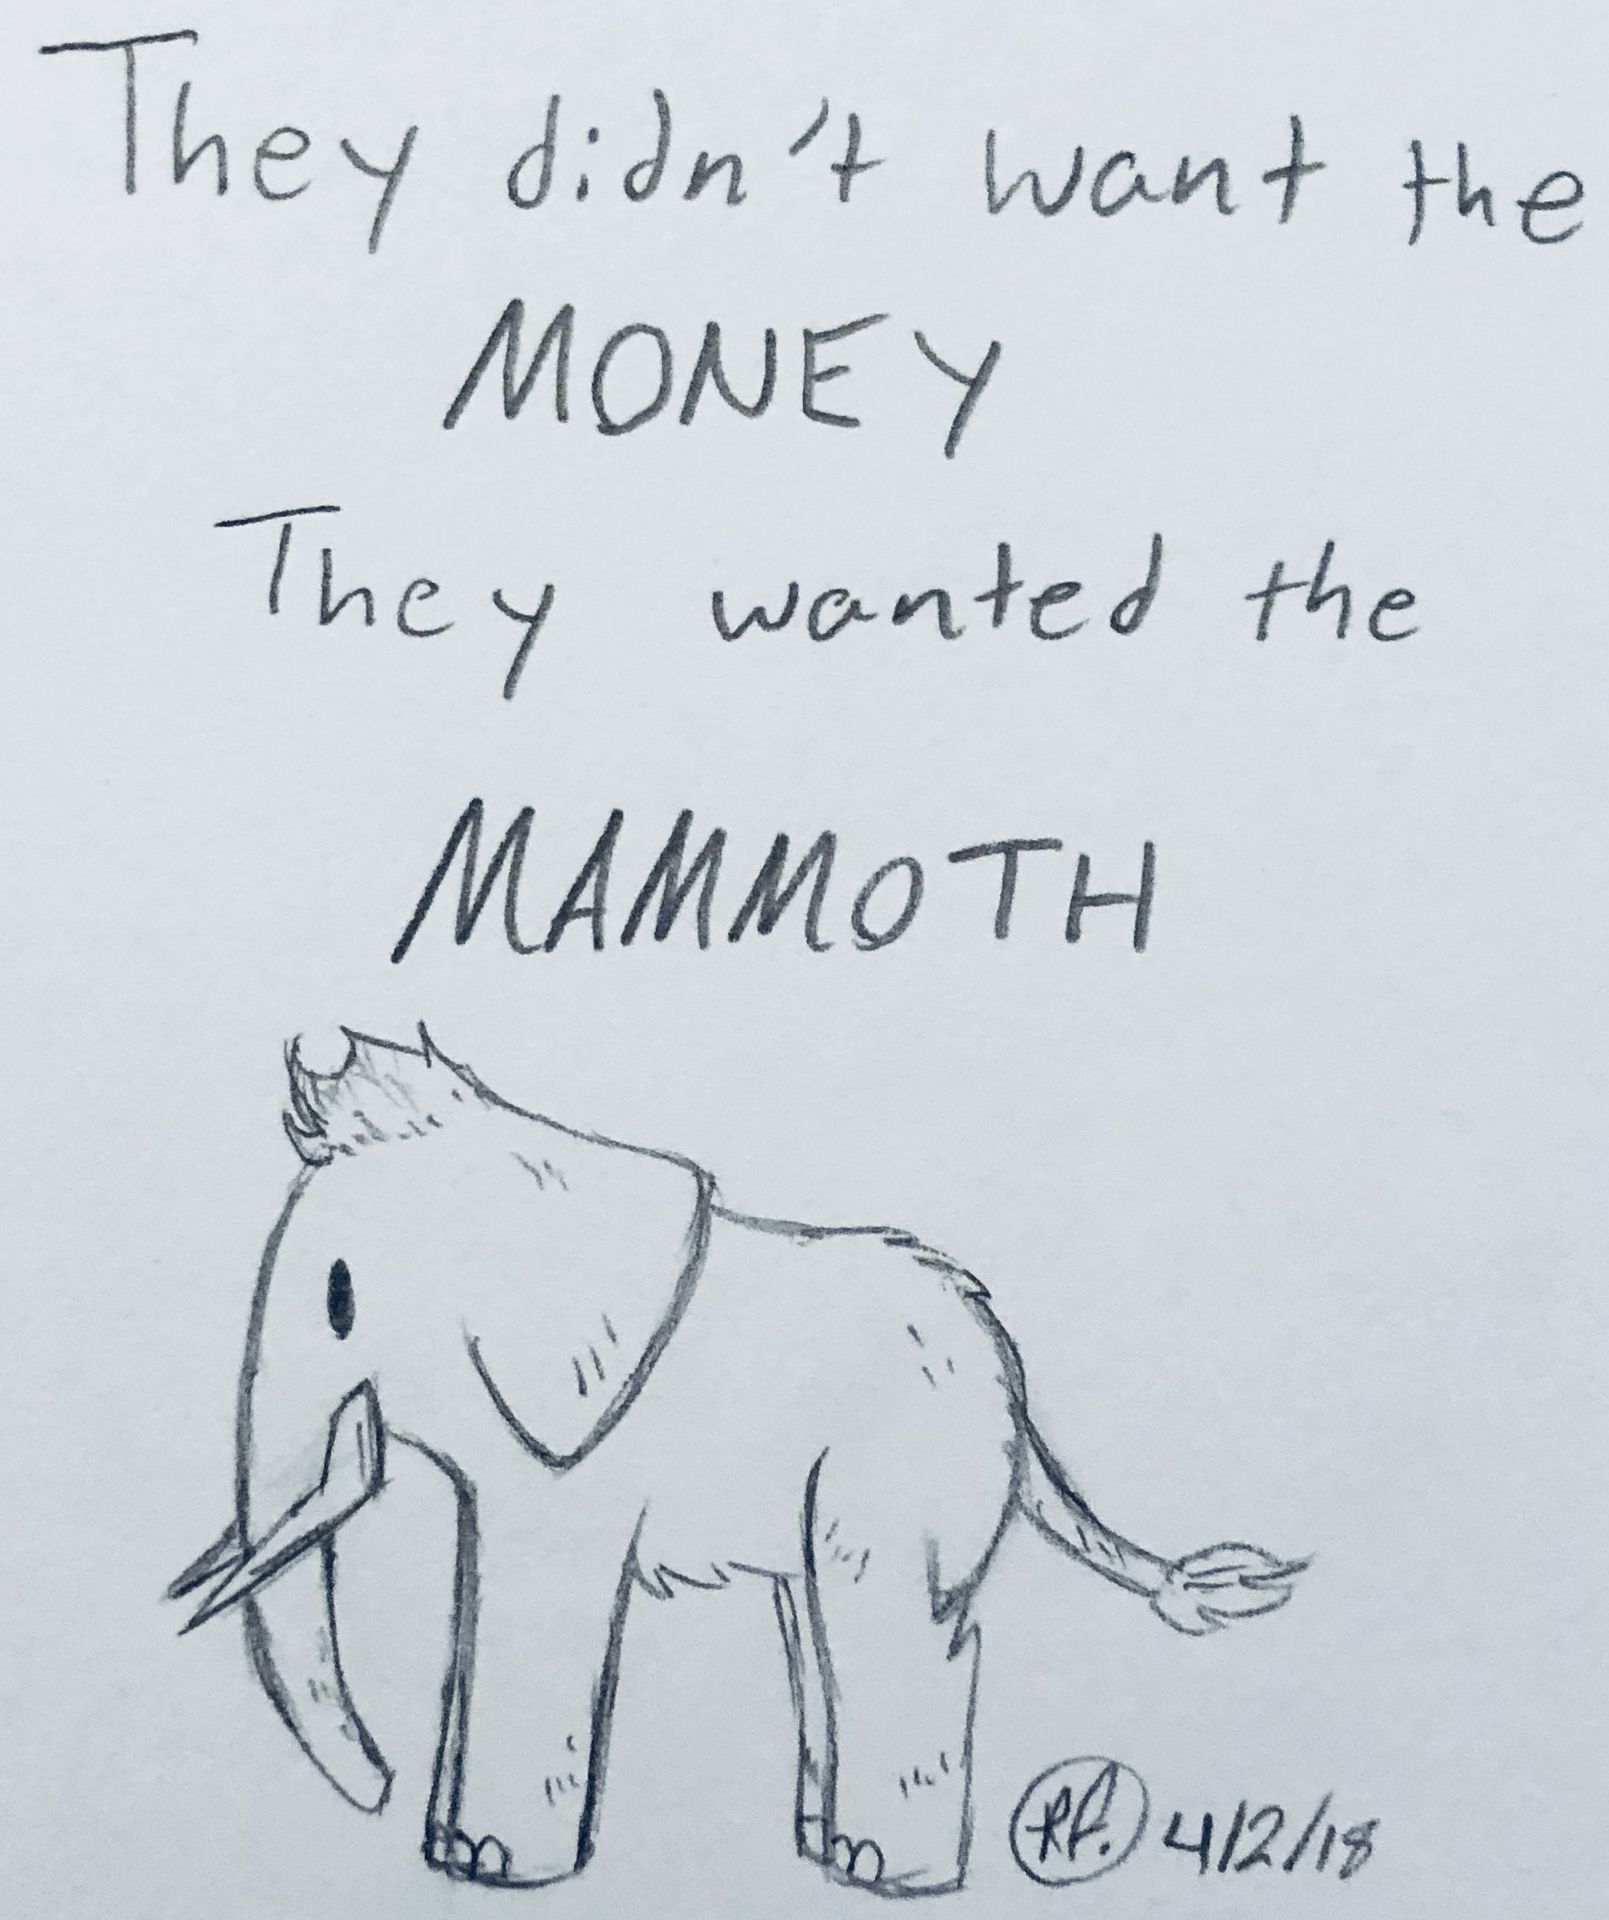 They didn't want the
MONEY
They wanted the
MAMMOTH
RF. 4/2/18